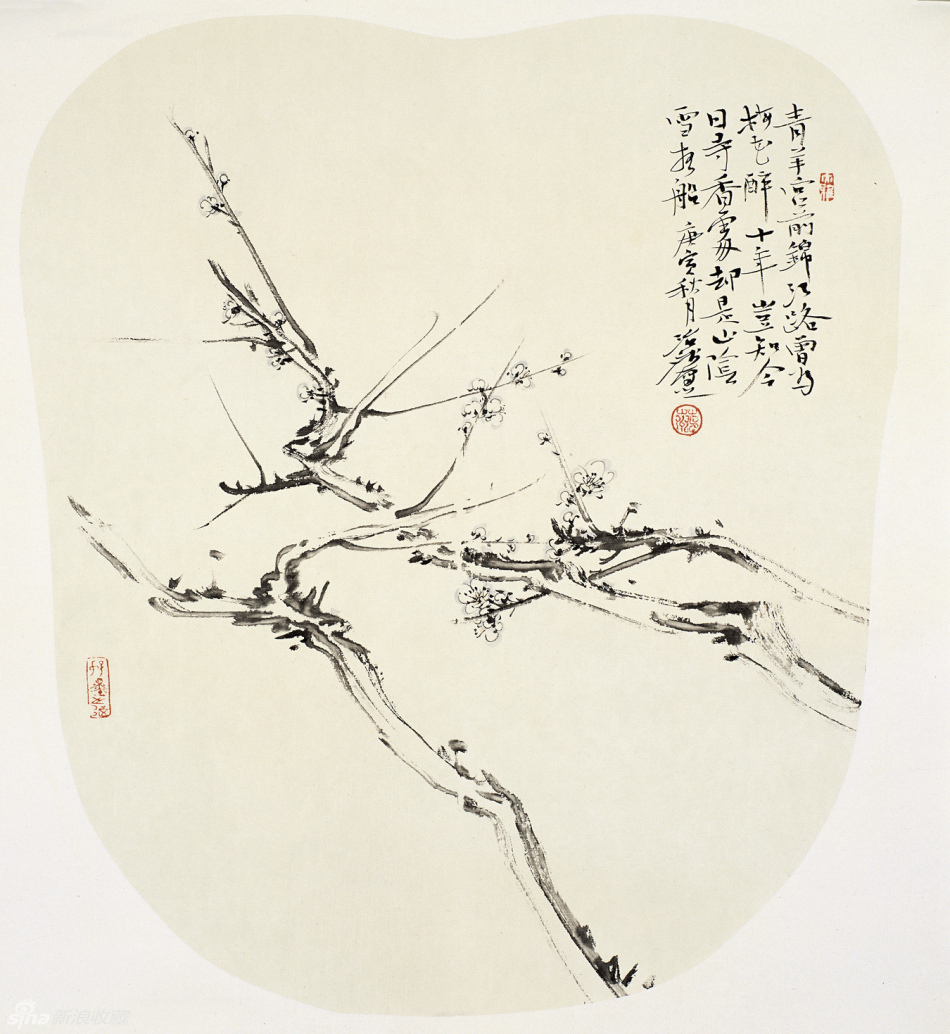 青羊宫前錦江路曾為
梅花醉十年豈知今
日尋香處却是山陰
雪夜船 庚寅秋月
sina新浪收藏